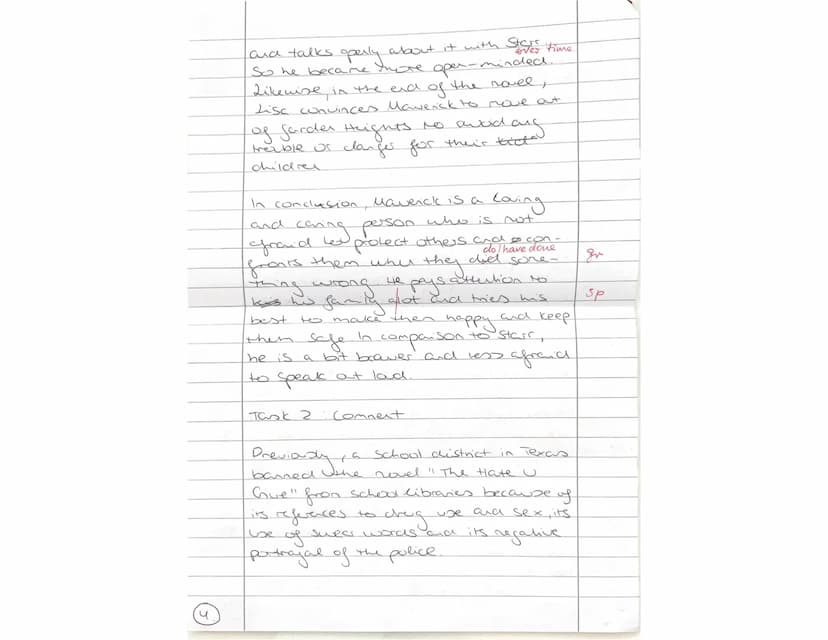 and talks openly about it with Starr
over time
So he became more open-minded.
Likewise, in the end of the novel,
Lisa convinces Maverick to move out
of Garden Heights to avoid any
trouble or danger for their
children
In conclusion, Maverick is a loving
and caring person who is not
afraid to protect others and con-
do/have done
fronts them when they did some- gr
thing wrong. He pays attention to
his family alot and tries his sp
best to make them happy and keep
them safe. In comparison to Starr,
he is a bit braver and less afraid
to speak out loud.
Task 2: Comment
Previously, a school district in Texas
banned the novel "The Hate U
Give" from school libraries because of
its references to drug use and sex, its
use of swear words and its negative
portrayal of the police.
4